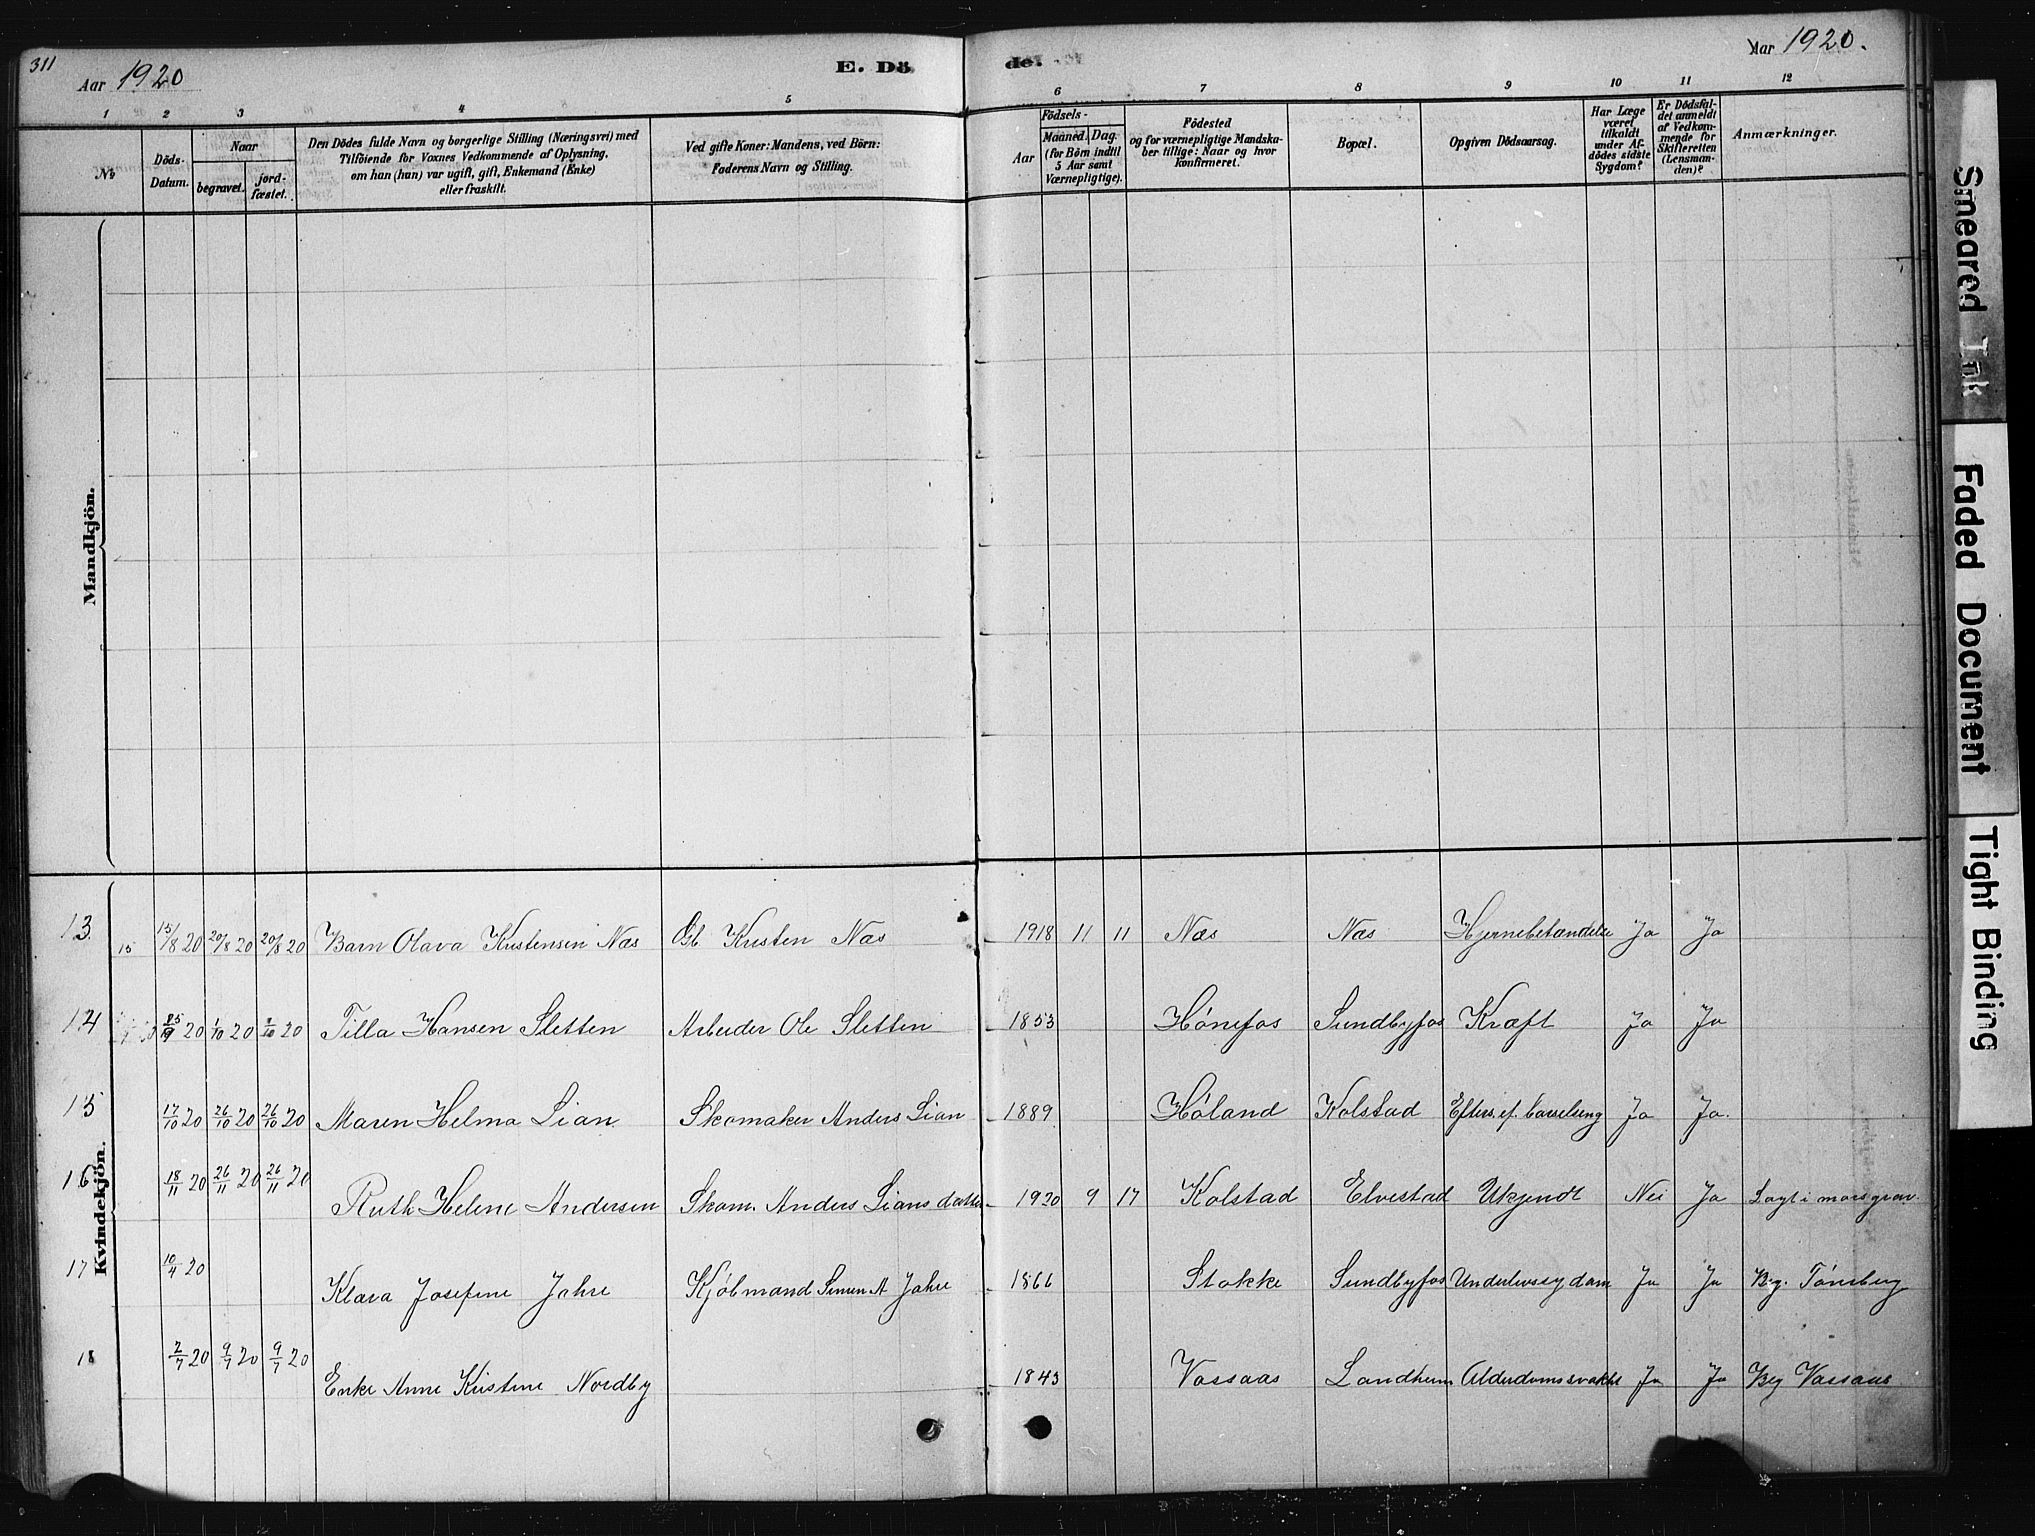 311
Aar 1920
E. Dö
de.
Aar 1920.
1 2 3 4 5 6 7 8 9 10 11 12
No
Döds-
Datum.
Naar
begravet.
jord-
fæstet.
Den Dödes fulde Navn og borgerlige Stilling (Næringsvei) med
Tilföiende for Voxnes Vedkommende af Oplysning,
om han (hun) var ugift, gift, Enkemand (Enke)
eller fraskilt.
Ved gifte Koner: Mandens, ved Börn:
Faderens Navn og Stilling.
Födsels-
Aar
Maaned.
Dag.
(for Börn indtil
5 Aar samt
Værnepligtige).
Födested
og for værnepligtige Mandska-
ber tillige: Naar og hvor
konfirmeret.
Bopæl.
Opgiven Dödsaarsag.
Har Læge
været
tilkaldt
under Af-
dödes sidste
Sygdom?
Er Dödsfal-
det anmeldt
af Vedkom-
mende for
Skifteretten
(Lensman-
den)?
Anmærkninger.
Mandkjön.
Kvindekjön.
13 15 15/8 20 20/8 20 20/8 20 Barn Olava Kristensen Næs Gb. Kristen Næs 1918 11 11 Næs Næs Hjernebetændelse Ja Ja
14 25/9 20 1/10 20 20 Tilla Hansen Sletten Arbeider Ole Sletten 1853 Hönefos Sundbyfos Kræft Ja Ja
15 17/10 20 26/10 20 26/10 20 Maren Helma Lian Skomaker Anders Lian 1889 Höland Kolstad Efters. ef. barselseng Ja Ja.
16 18/11 20 26/11 20 26/11 20 Ruth Helene Andersen Skom. Anders Lians datter 1920 9 17 Kolstad Elvestad Ukjendt Nei Ja Lagt i mors grav.
17 10/4 20 Klara Josefine Jahre Kjöbmand Simen A Jahre 1866 Stokke Sundbyfos Underlivssygdom Ja Ja Beg. Tönsberg
18 2/7 20 9/7 20 9/7 20 Enke Anne Kristine Nordby 1843 Vassaas Landheim Alderdomssvakhet Ja Ja Beg Vassaas
Smeared Ink
Faded Document
Tight Binding